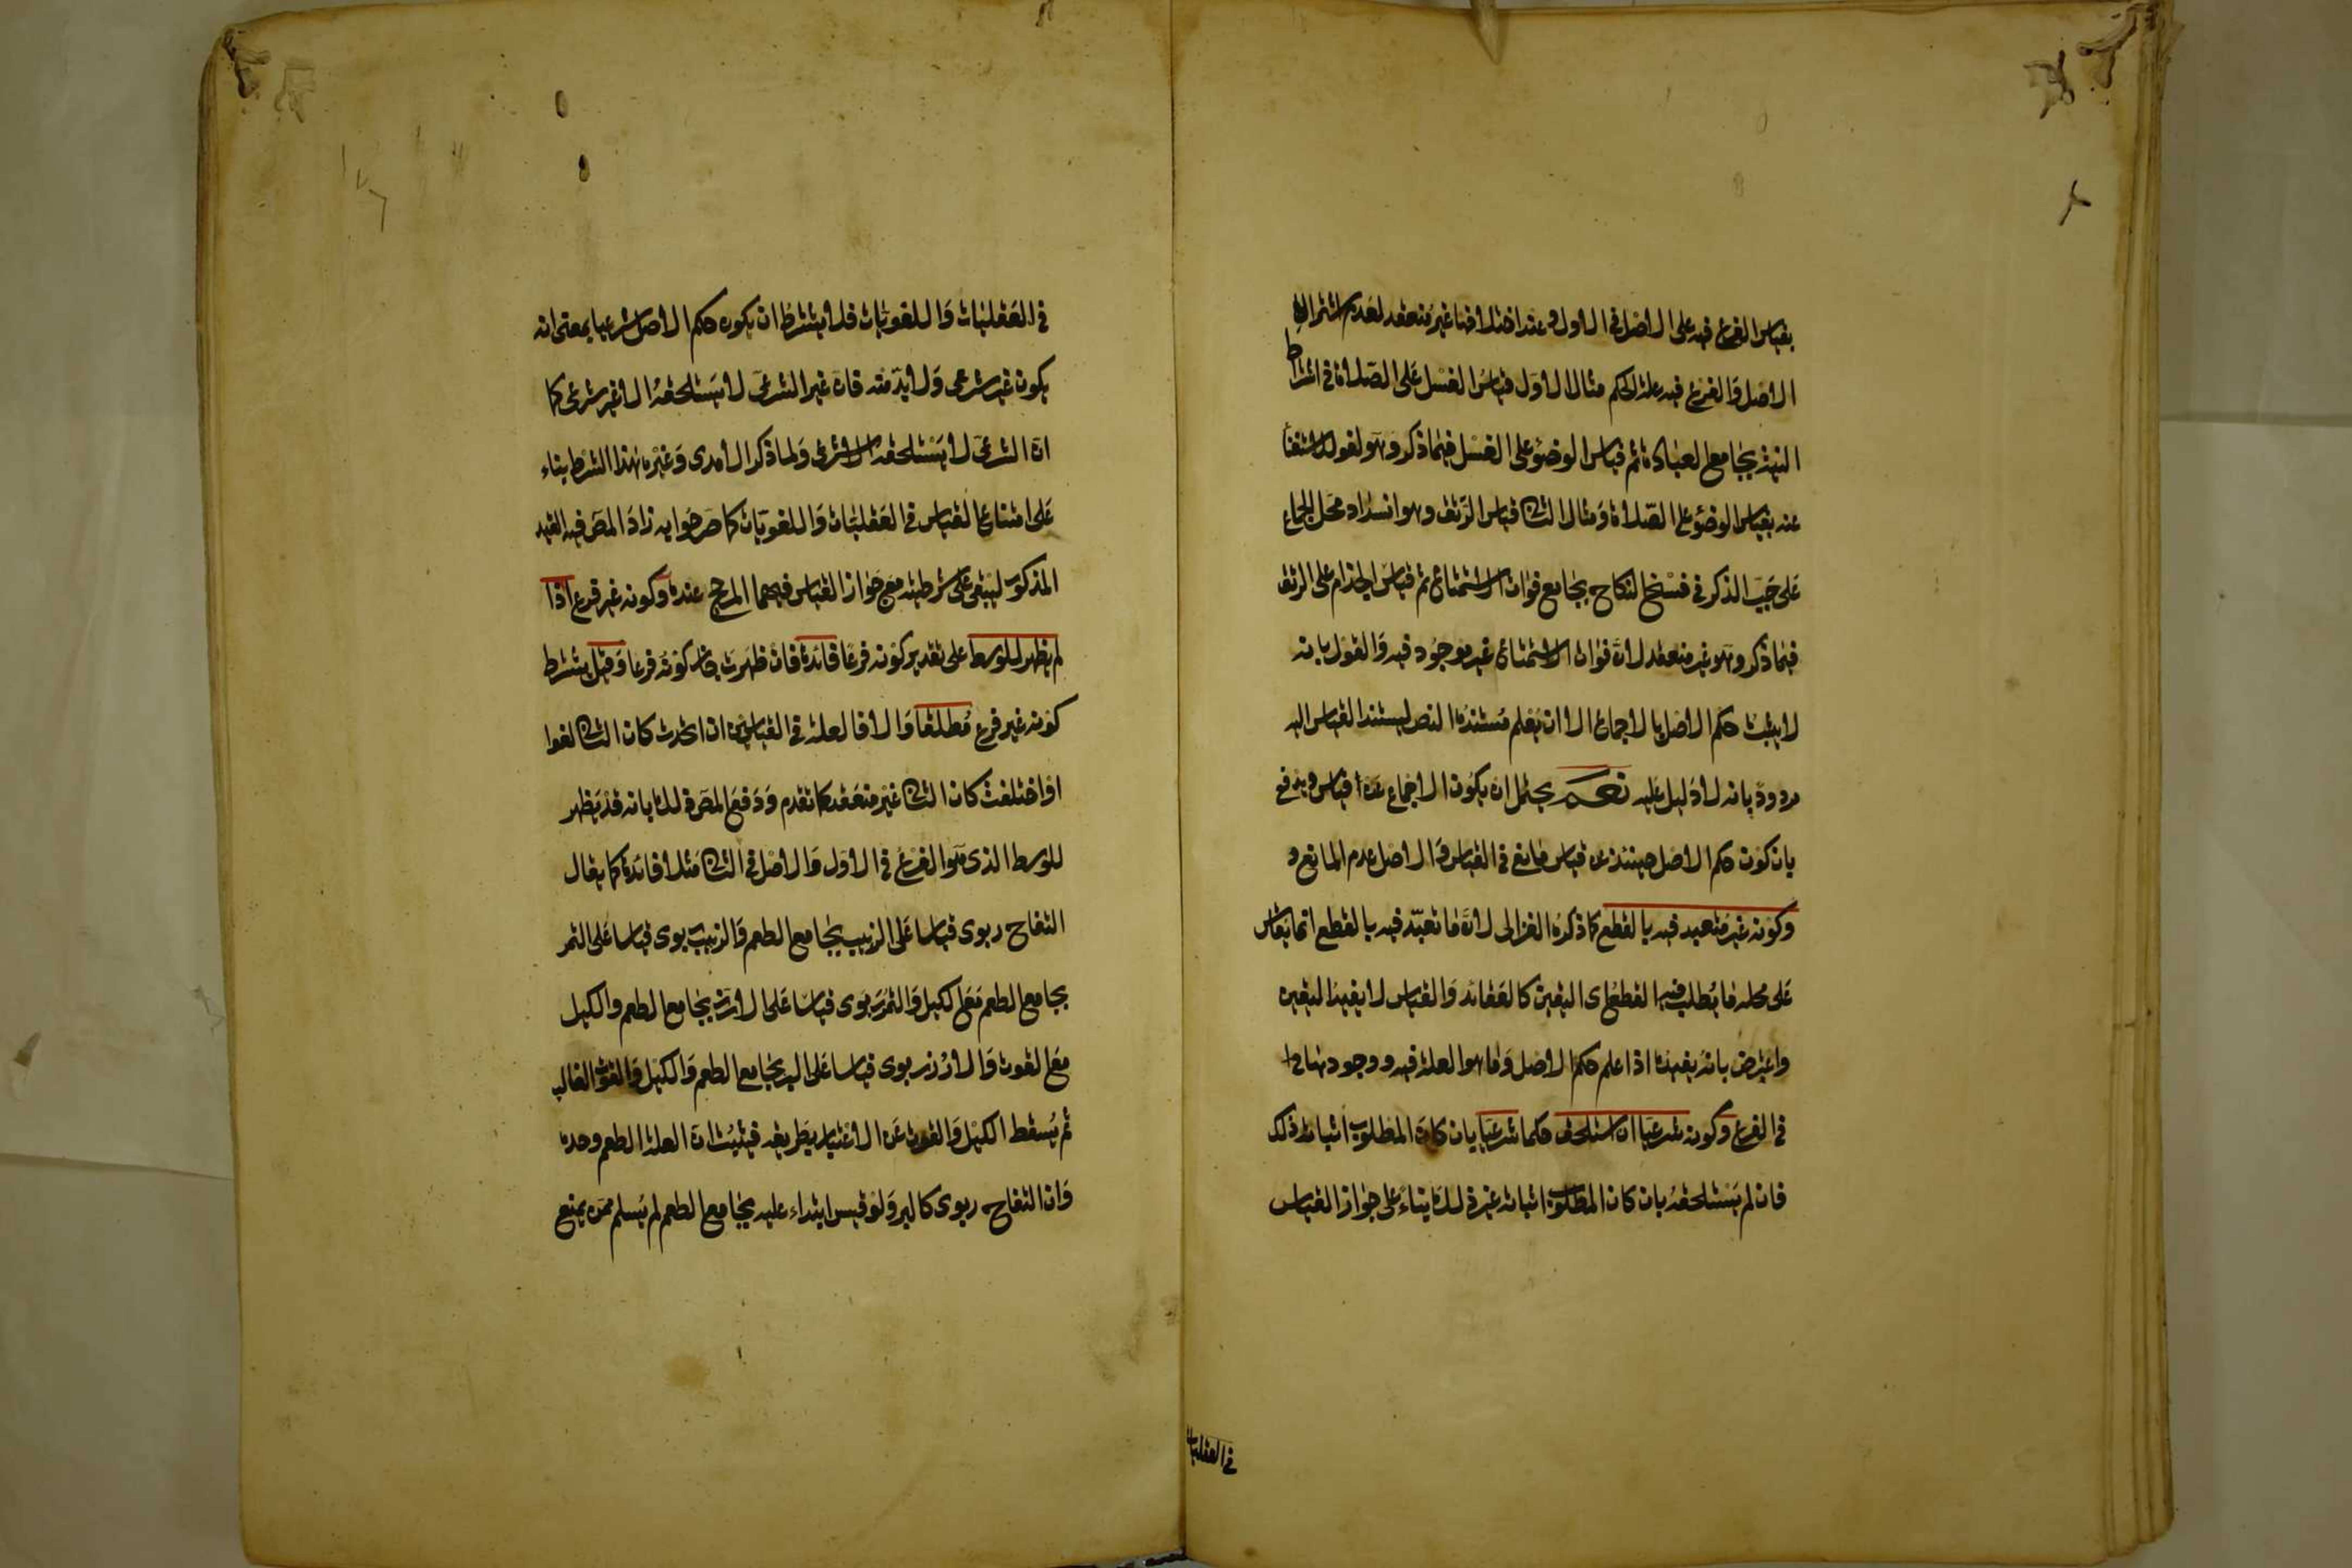 بقياس الفرع فيه على الاصل في الاول وعند اختلافهما غير منعقد لعدم اشتراك
الاصل والفرع فيه علة الحكم مثال الاول قياس الغسل على الصلاة في اشتراط
النية بجامع العبادة ثم قياس الوضوء على الغسل فيما ذكر وهو لغو للاستغناء
عنه بقياس الوضوء على الصلاة ومثال الثاني قياس الرتق وهو انسداد محل الجماع
على جب الذكر في فسخ النكاح بجامع فوات الاستمتاع ثم قياس الجذام على الرتق
فيما ذكر وهو غير منعقد لان فوات الاستمتاع غير موجود فيه والقول بانه
لا يثبت حكم الاصل بالاجماع الا ان يعلم مستنده النص ليستند القياس اليه
مردود بانه لا دليل عليه نعم يحتمل ان يكون الاجماع عن قياس ويدفع
بان كون حكم الاصل حينئذ عن قياس مانع في القياس والاصل عدم المانع و
وكونه غير متعبد فيه بالقطع كما ذكره الغزالى لان ما تعبد فيه بالقطع انما يقاس
على محله ما يطلب فيه القطع اى اليقين كالعقائد والقياس لا يفيد اليقين
واعترض بانه يفيده اذا علم حكم الاصل وما هو العلة فيه ووجودها
في الفرع وكونه شرعيا ان استلحق حكما شرعيا بان كان المطلوب اثباته ذلك
فان لم يستلحقه بان كان المطلوب اثباته غير ذلك بناء على جواز القياس
في العقليات
في العقليات واللغويات فلا يشترط ان يكون حكم الاصل شرعيا بمعنى انه
يكون غير شرعى ولابد منه فان غير الشرعى لا يستلحقه الا غير شرعى كما
ان الشرعى لا يستلحقه الا شرعى ولما ذكر الامدى وغيره هذا الشرط بناء
على امتناع القياس في العقليات واللغويات كما صرحوا به زاد المص فيه القيد
المذكور ليبقى على شرطيته مع جواز القياس فيهما المرجح عنده وكونه غير فرع اذا
لم يظهر للوسط على تقدير كونه فرعا فائدة فان ظهرت جاز كونه فرعا وقيل يشترط
كونه غير فرع مطلقا والا فالعلة في القياسين ان اتحدت كان الثاني لغوا
او اختلفت كان الثاني غير منعقد كما تقدم ودفع المص ذلك بانه قد يظهر
للوسط الذى هو الفرع في الاول والاصل في الثاني مثلا فائدة كما يقال
التفاح ربوى قياسا على الزبيب بجامع الطعم والزبيب ربوى قياسا على التمر
بجامع الطعم مع الكيل والتمر ربوى قياسا على الارز بجامع الطعم والكيل
مع القوت والارز ربوى قياسا على البر بجامع الطعم والكيل والقوت الغالب
ثم يسقط الكيل والقوت عن الاعتبار بطريقه فيثبت ان العلة الطعم وحده
وان التفاح ربوى كالبر ولو قيس ابتداء عليه بجامع الطعم لم يسلم ممن يمنع